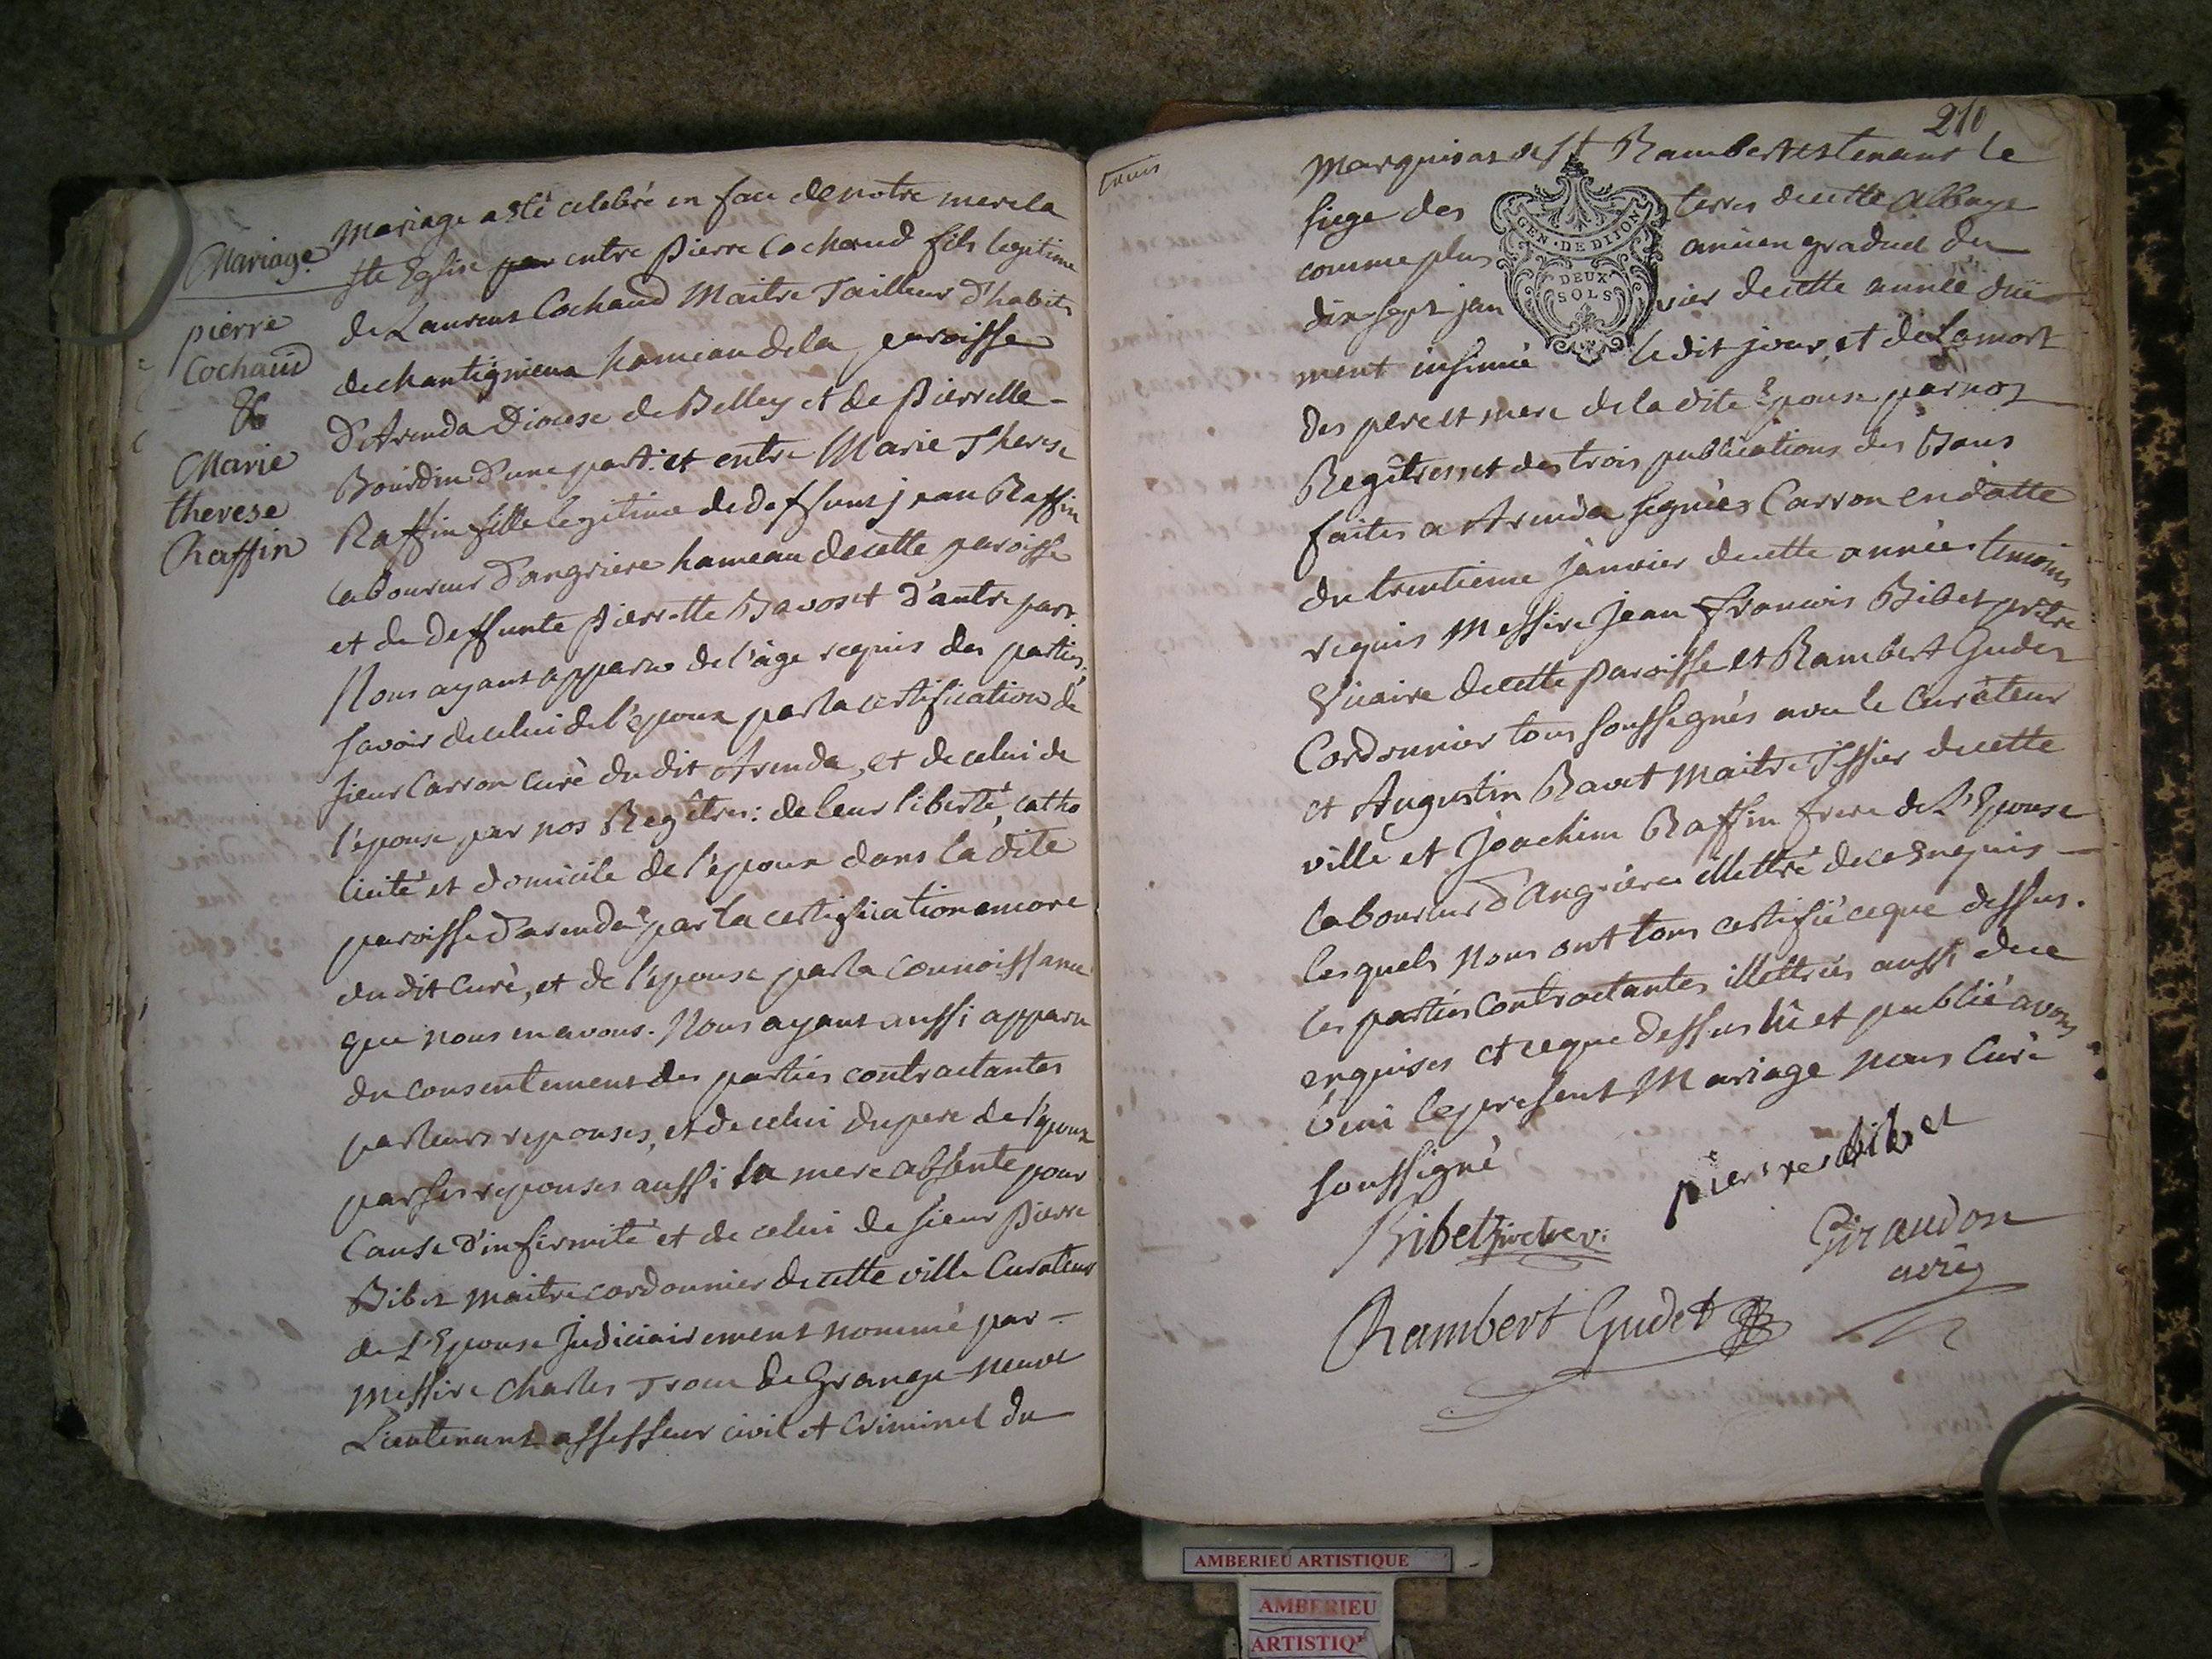 Mariage
pierre
Cochaud
&
Marie
therese
Raffin
Mariage a été célébré en face de notre mere la
ste Eglise par entre Pierre Cochaud fils legitime
de Laurent Cochaud Maitre Tailleur d'habits
de chantignieux hameau de la paroisse
D'Arenda Diocese de Belley et de Pierrette
Bourdin d'une part: et entre Marie Therese
Raffin fille legitime de deffunt jean Raffin
laboureur d'angriere hameau de cette paroisse
et de deffunte Pierrette Savoset d'autre part.
Nous ayant apparu de l'âge requis des parties;
savoir de celui de l'epoux par la certification de
sieur Carron curé du dit Arenda, et de celui de
l'épouse par nos Regîtres: de leur liberté, catho
licité et domicile de l'époux dans la dite
paroisse d'arenda par la certification encore
du dit Curé, et de l'épouse par la connoissance
que nous en avons. Nous ayant aussi apparu
du consentement des parties contractantes
par leurs reponses, et de celui du pere de l'époux
par ses reponses aussi la mere absente pour
Cause d'infirmité et de celui de sieur Pierre
Bibet maitre cordonnier de cette ville Curateur
de L'Epouse Judiciairement nommé par
Messire Charles Trocu de Grange-neuve
Lieutenant assesseur civil et Criminel du
210
temis
Marquisat de St Rambert et tenant le
siege des terres de cette Abbaye
comme plus ancien gradué du
dix sept jan vier de cette année due
ment insinué le dit jour, et de la mort
des pere et mere de la dite Epouse par nos
Regîtres et des trois publications des Bans
faites a Arenda signées Carron en datte
du trentieme janvier de cette année temoins
requis Messire Jean francois Bibet prêtre
Vicaire de cette Paroisse et Rambert Gudet
Cordonnier tous soussignés avec le Curateur
et Augustin Ravet Maitre Tissier de cette
ville et Joachim Raffin frere de L'Epouse
laboureur d'Angriere illettré de ce enquis
lesquels Nous ont tous certifié ce que dessus.
les parties Contractantes illettrées aussi de ce
enquises et ce que dessus lû et publié avons
beni le present Mariage nous Curé
soussigné
pierre Bibet
Bibet pretre v:
Giraudon
curé
Rambert Gudet
GEN · DE DIJON
DEUX
SOLS
AMBERIEU ARTISTIQUE
AMBERIEU
ARTISTIQ